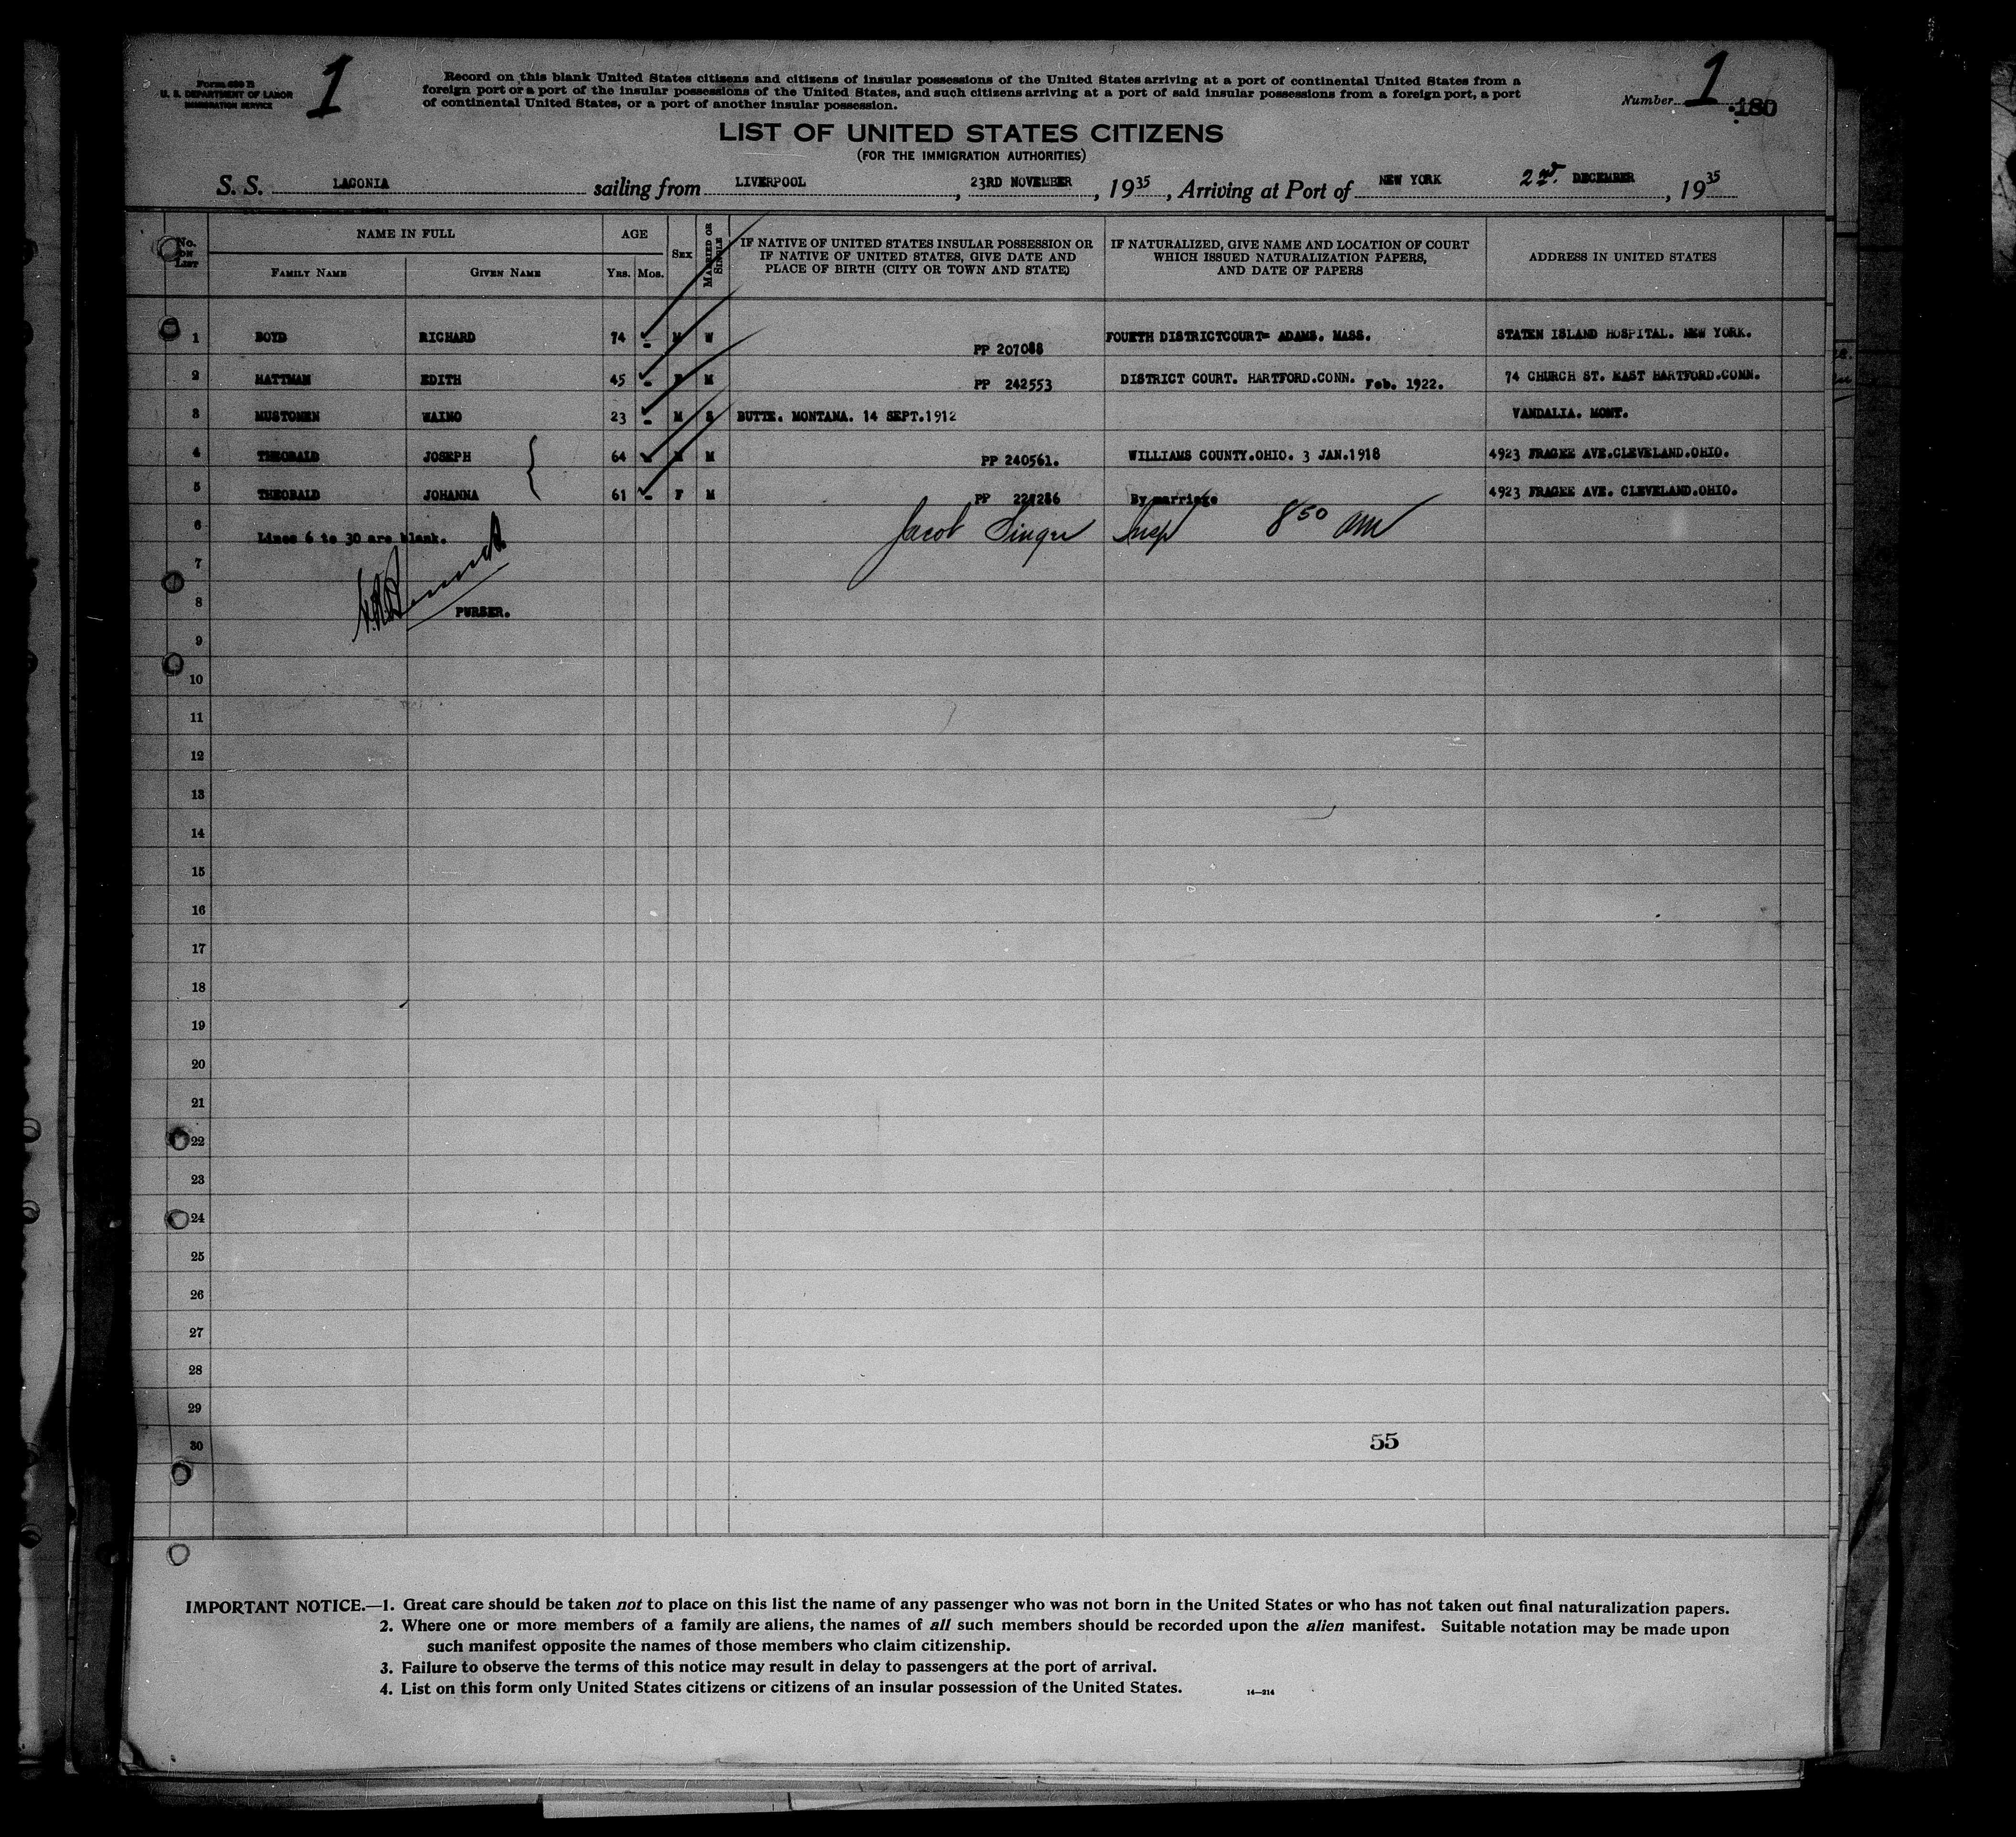 Form 630 B
U. S. DEPARTMENT OF LABOR
IMMIGRATION SERVICE
1
Record on this blank United States citizens and citizens of insular possessions of the United States arriving at a port of continental United States from a
foreign port or a port of the insular possessions of the United States, and such citizens arriving at a port of said insular possessions from a foreign port, a port
of continental United States, or a port of another insular possession.
Number 1 180
LIST OF UNITED STATES CITIZENS
(FOR THE IMMIGRATION AUTHORITIES)
S. S. LACONIA sailing from LIVERPOOL, 23RD NOVEMBER, 1935, Arriving at Port of NEW YORK 2nd. DECEMBER, 1935
No. ON LIST NAME IN FULL AGE SEX MARRIED OR SINGLE IF NATIVE OF UNITED STATES INSULAR POSSESSION OR IF NATIVE OF UNITED STATES, GIVE DATE AND PLACE OF BIRTH (CITY OR TOWN AND STATE) IF NATURALIZED, GIVE NAME AND LOCATION OF COURT WHICH ISSUED NATURALIZATION PAPERS, AND DATE OF PAPERS ADDRESS IN UNITED STATES
FAMILY NAME GIVEN NAME YRS. MOS.
1 BOYD RICHARD 74 - M W PP 207088 FOURTH DISTRICTCOURT= ADAMS. MASS. STATEN ISLAND HOSPITAL. NEW YORK.
2 HATTMAN EDITH 45 - F M PP 242553 DISTRICT COURT. HARTFORD.CONN. Feb. 1922. 74 CHURCH ST. EAST HARTFORD.CONN.
3 MUSTONEN WAINO 23 - M S BUTTE. MONTANA. 14 SEPT.1912 VANDALIA. MONT.
4 THEOBALD JOSEPH 64 - M M PP 240561. WILLIAMS COUNTY.OHIO. 3 JAN.1918 4923 FRAGEE AVE.CLEVELAND.OHIO.
5 THEOBALD JOHANNA 61 - F M PP By marriage 4923 FRAGEE AVE. CLEVELAND.OHIO.
6 Lines 6 to 30 are blank. Jacob Singer Insp 8 50 am
7
8 PURSER.
9
10
11
12
13
14
15
16
17
18
19
20
21
22
23
24
25
26
27
28
29
30 55
IMPORTANT NOTICE.—1. Great care should be taken not to place on this list the name of any passenger who was not born in the United States or who has not taken out final naturalization papers.
2. Where one or more members of a family are aliens, the names of all such members should be recorded upon the alien manifest. Suitable notation may be made upon
such manifest opposite the names of those members who claim citizenship.
3. Failure to observe the terms of this notice may result in delay to passengers at the port of arrival.
4. List on this form only United States citizens or citizens of an insular possession of the United States. 14—214